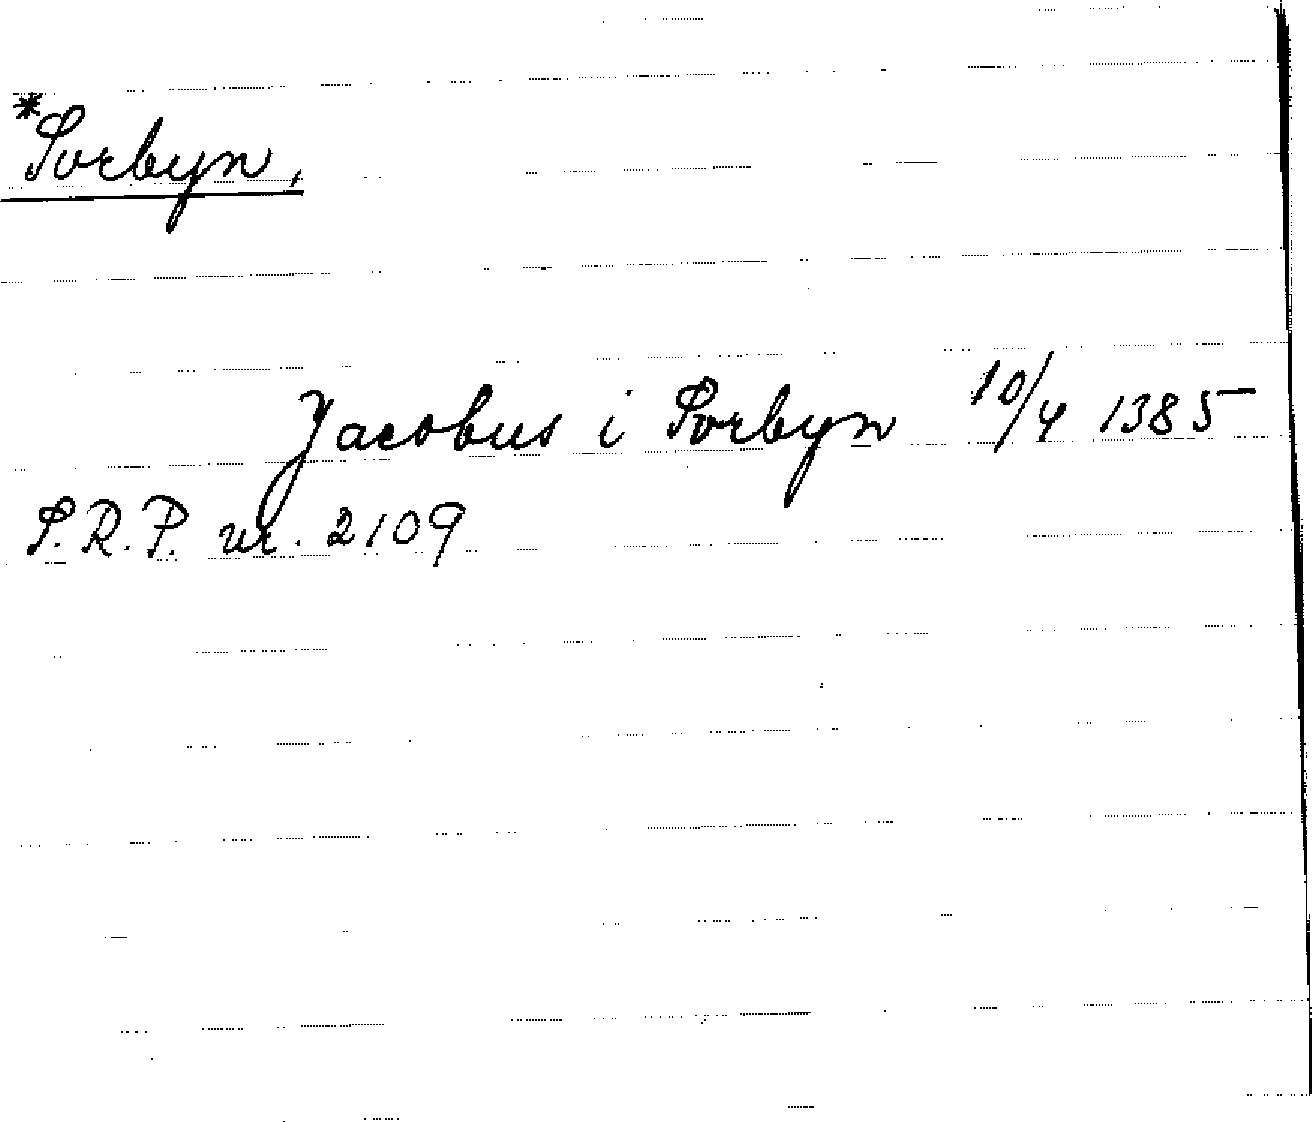 *Sorbyn,
Jacobus i Sorbyn 10/4 1385
S.R.P. nr. 2109